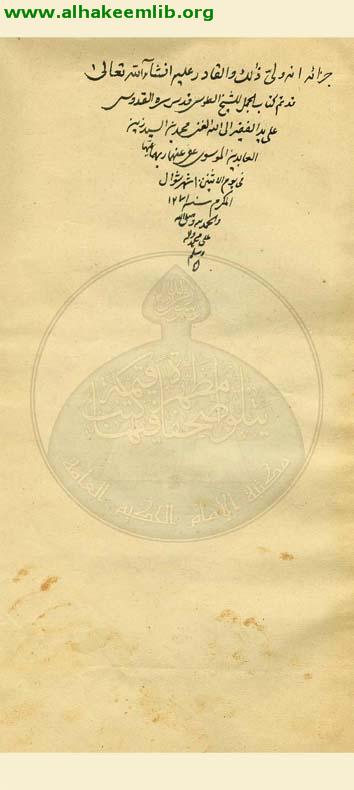 www.alhakeemlib.org
جزائه انه ولي ذلك والقادر عليه انشاء الله تعالى
قد تم كتاب الجمل للشيخ الطوسي قدس سره القدوسي
على يد الفقير الى الله الغني محمد بن السيد زين
العابدين الموسوي عفى عنهما ربهما
في يوم الاثنين شهر شوال
المكرم سنه
والحمد لله وصلى الله
على محمد واله
وسلم
يتلو صحفا مطهرة فيها كتب قيمة
مكتبة الإمام الحكيم العامة